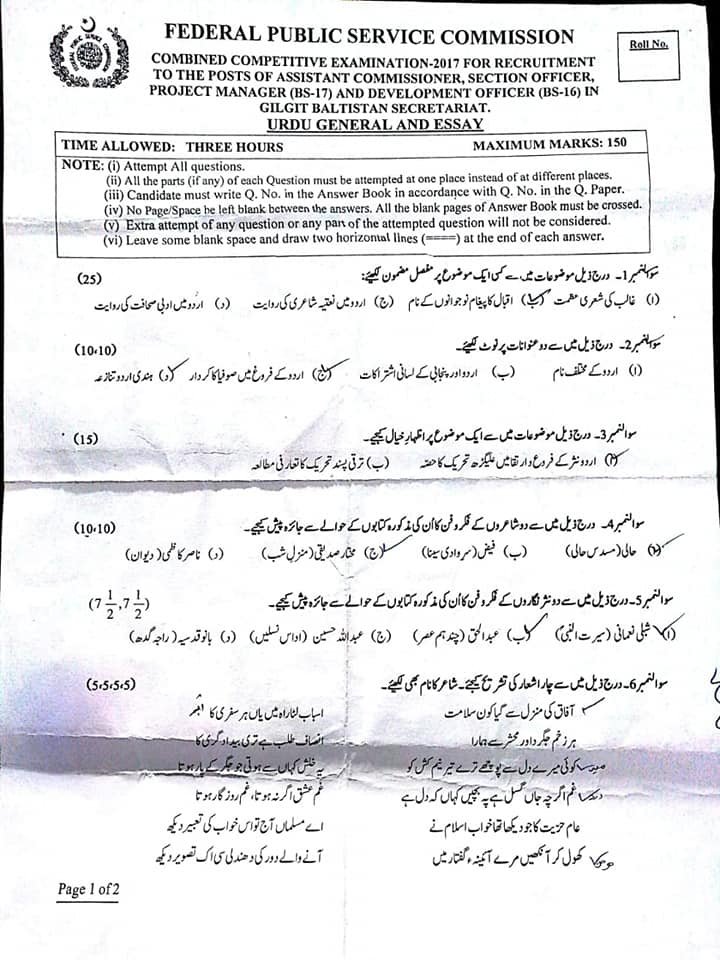 FEDERAL PUBLIC SERVICE COMMISSION
Roll No.
COMBINED COMPETITIVE EXAMINATION-2017 FOR RECRUITMENT
TO THE POSTS OF ASSISTANT COMMISSIONER, SECTION OFFICER,
PROJECT MANAGER (BS-17) AND DEVELOPMENT OFFICER (BS-16) IN
GILGIT BALTISTAN SECRETARIAT.
URDU GENERAL AND ESSAY
TIME ALLOWED: THREE HOURS MAXIMUM MARKS: 150
NOTE: (i) Attempt All questions.
(ii) All the parts (if any) of each Question must be attempted at one place instead of at different places.
(iii) Candidate must write Q. No. in the Answer Book in accordance with Q. No. in the Q. Paper.
(iv) No Page/Space be left blank between the answers. All the blank pages of Answer Book must be crossed.
(v) Extra attempt of any question or any part of the attempted question will not be considered.
(vi) Leave some blank space and draw two horizontal lines (====) at the end of each answer.
سوالنمبر 1۔ درج ذیل موضوعات میں سے کسی ایک موضوع پر مفصل مضمون لکھیئے: (25)
(ا) غالب کی شعری عظمت (ب) اقبال کا پیغام نوجوانوں کے نام (ج) اردو میں نعتیہ شاعری کی روایت (د) اردو میں ادبی صحافت کی روایت
سوالنمبر 2۔ درج ذیل میں سے دو عنوانات پر نوٹ لکھیئے۔ (10،10)
(ا) اردو کے مختلف نام (ب) اردو اور پنجابی کے لسانی اشتراکات (ج) اردو کے فروغ میں صوفیا کا کردار (د) ہندی اردو تنازعہ
سوالنمبر 3۔ درج ذیل موضوعات میں سے ایک موضوع پر اظہارِ خیال کیجیے۔ (15)
(ا) اردو نثر کے فروغ و ارتقا میں علیگڑھ تحریک کا حصّہ (ب) ترقی پسند تحریک کا تعارفی مطالعہ
سوالنمبر 4۔ درج ذیل میں سے دو شاعروں کے فکر و فن کا اُن کی مذکورہ کتابوں کے حوالے سے جائزہ پیش کیجیے۔ (10،10)
(ا) حالی (مسدس حالی) (ب) فیض (سر وادی سینا) (ج) مختار صدیقی (منزل شب) (د) ناصر کاظمی (دیوان)
سوالنمبر 5۔ درج ذیل میں سے دو نثر نگاروں کے فکر و فن کا اُن کی مذکورہ کتابوں کے حوالے سے جائزہ پیش کیجیے۔ (7 1/2 ,7 1/2)
(ا) شبلی نعمانی (سیرت النبی) (ب) عبدالحق (چند ہم عصر) (ج) عبداللہ حسین (اداس نسلیں) (د) بانو قدسیہ (راجہ گدھ)
سوالنمبر 6۔ درج ذیل میں سے چار اشعار کی تشریح کیجئے۔ شاعر کا نام بھی لکھیئے۔ (5،5،5،5)
آفاق کی منزل سے گیا کون سلامت اسباب لٹا راہ میں یاں ہر سفری کا
ہر زخمِ جگر داورِ محشر سے ہمارا انصاف طلب ہے تری بیدادگری کا
کوئی میرے دل سے پوچھے ترے تیرِ نیم کش کو یہ خلش کہاں سے ہوتی جو جگر کے پار ہوتا
غم اگرچہ جاں گسل ہے پہ بچیں کہاں کہ دل ہے غم عشق اگر نہ ہوتا، غم روزگار ہوتا
عام حریت کا جو دیکھا تھا خواب اسلام نے اے مسلماں آج تو اس خواب کی تعبیر دیکھ
کھول کر آنکھیں مرے آئینہء گفتار میں آنے والے دور کی دھندلی سی اک تصویر دیکھ
Page 1 of 2